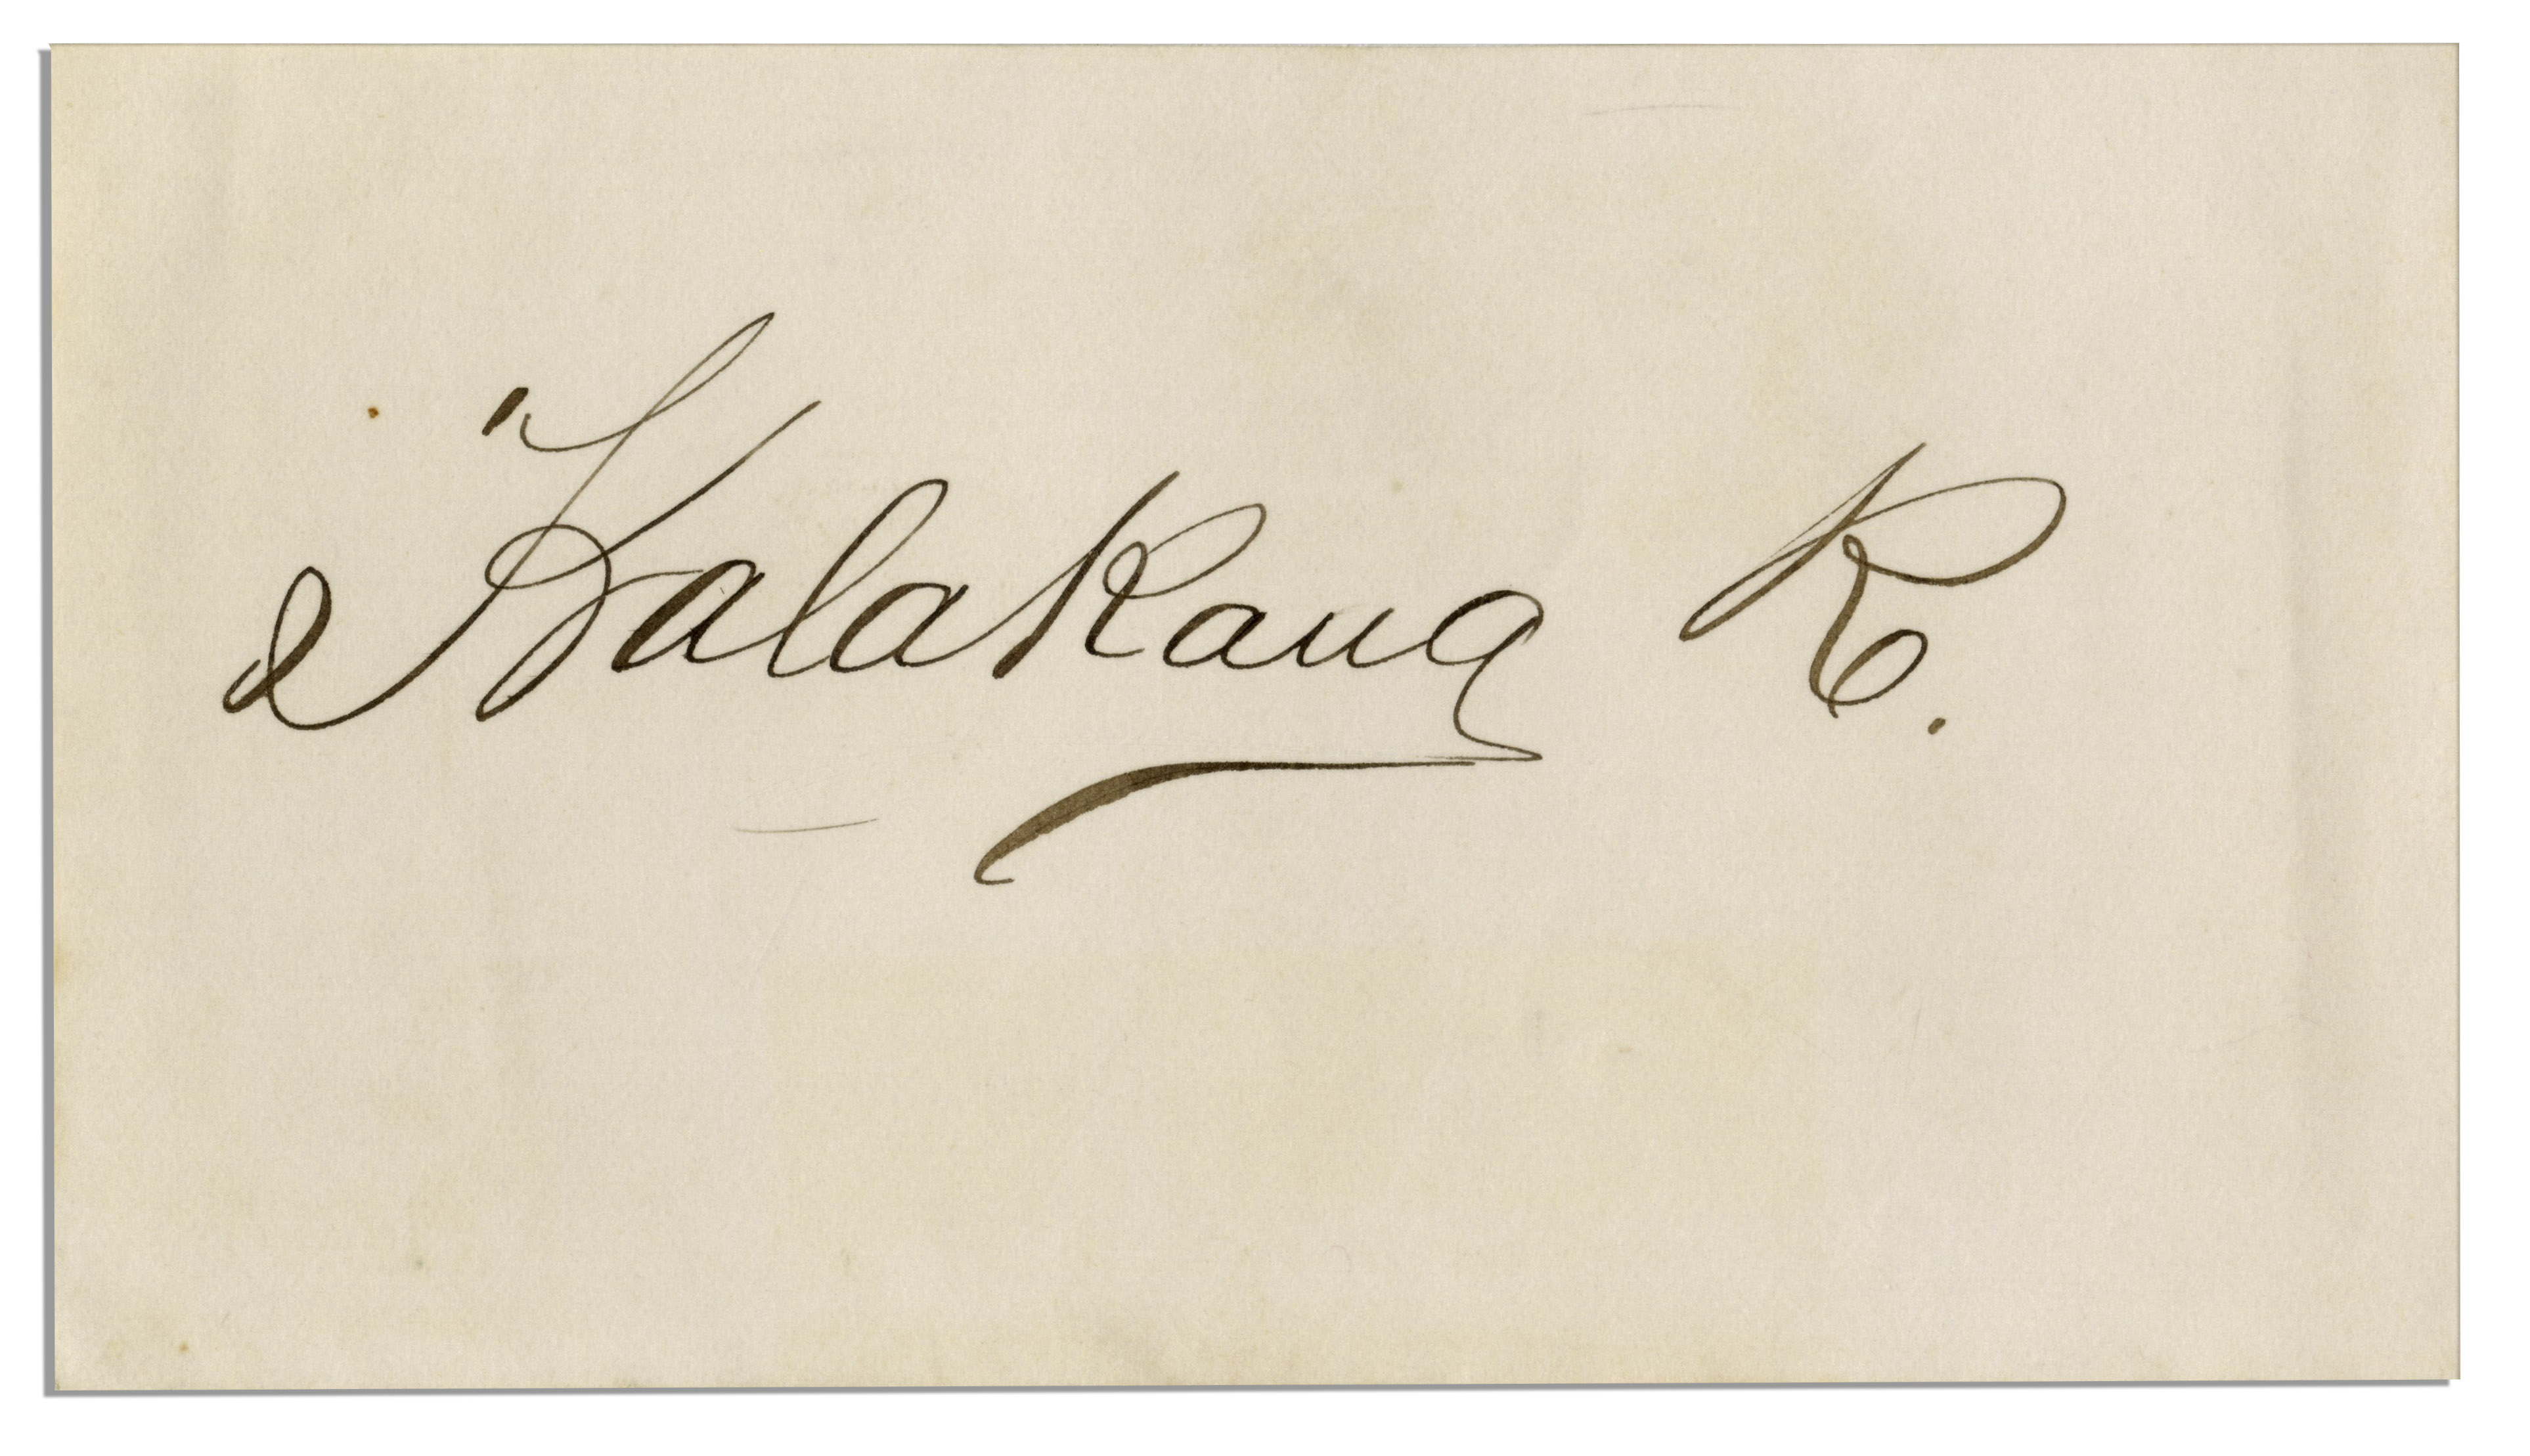 Kalakaua R.